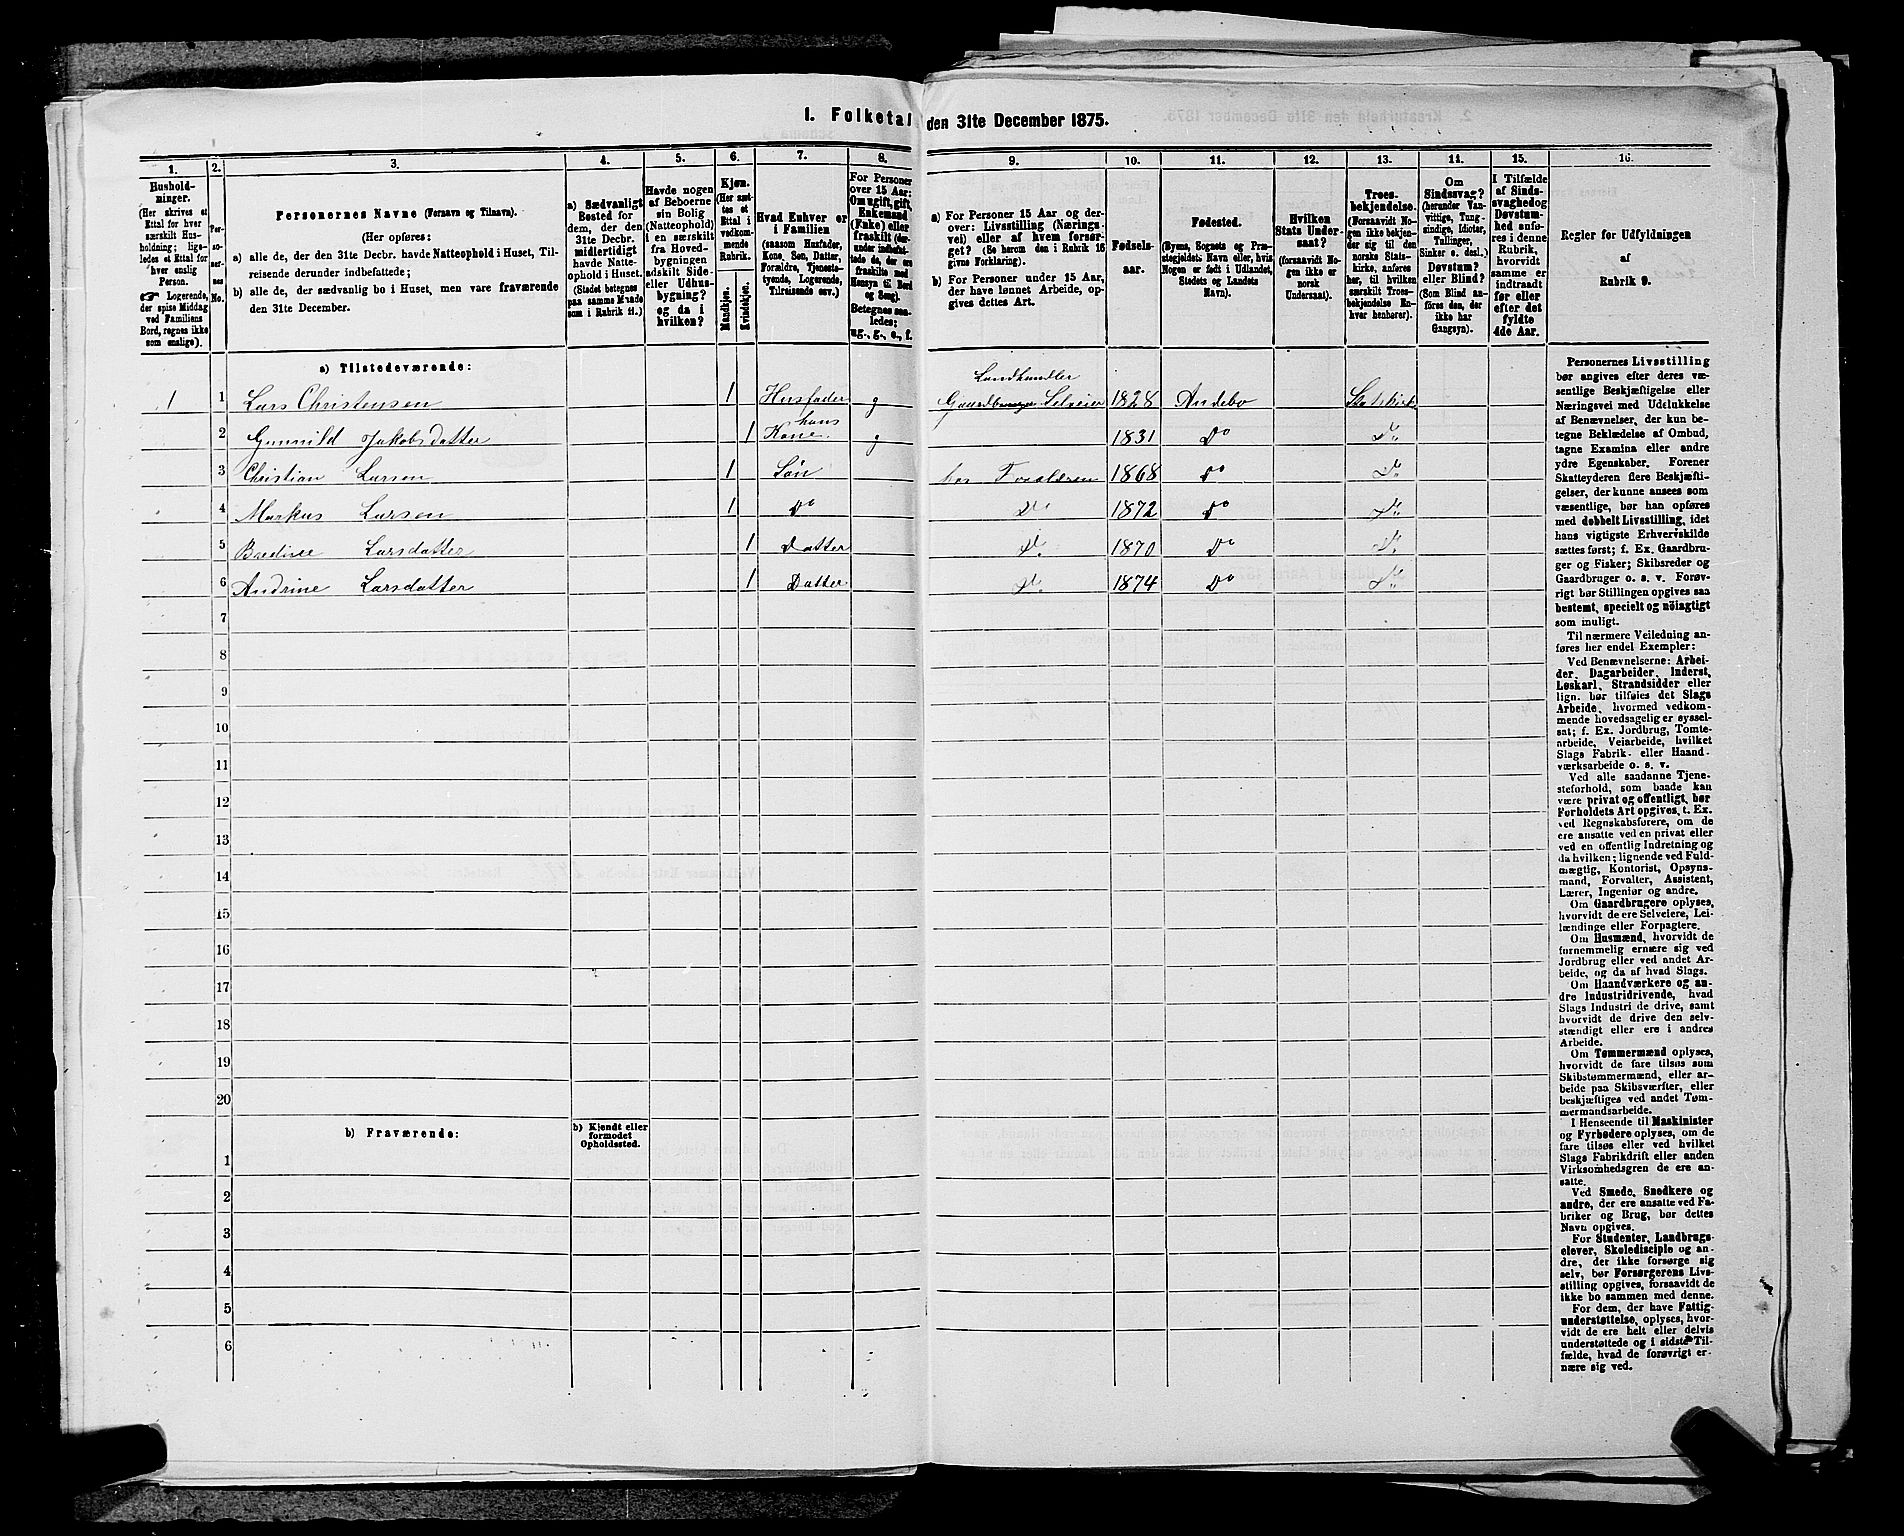 1. Folketal den 31te December 1875.
1. 2. 3. 4. 5. 6. 7. 8. 9. 10. 11. 12. 13. 14. 15. 16.
Hushold-
ninger.
(Her skrives et
Ettal for hver
særskilt Hus-
holdning; lige-
ledes et Ettal for
hver enslig
Person.
☞ Logerende,
der spise Middag
ved Familiens
Bord, regnes ikke
som enslige).
Per-
so-
ner-
nes
No.
Personernes Navne (Fornavn og Tilnavn).
(Her opføres:
a) alle de, der den 31te Decbr. havde Natteophold i Huset, Til-
reisende derunder indbefattede;
b) alle de, der sædvanlig bo i Huset, men vare fraværende
den 31te December.
a) Sædvanligt
Bosted for
dem, der den
31te Decbr.
midlertidigt
havde Natte-
ophold i Huset.
(Stedet betegnes
paa samme Maade
som i Rubrik 11.)
Havde nogen
af Beboerne
sin Bolig
(Natteophold)
i en særskilt
fra Hoved-
bygningen
adskilt Side-
eller Udhus-
bygning?
og da i
hvilken?
Kjøn.
(Her sæt-
tes et
Ettal i
vedkom-
mende
Rubrik.
Mandkjøn.
Kvindekjøn.
Hvad Enhver er
i Familien
(saasom Husfader,
Kone, Søn, Datter,
Forældre, Tjeneste-
tyende, Logerende,
Tilreisende osv.)
For Personer
over 15 Aar:
Om ugift, gift,
Enkemand
(Enke) eller
fraskilt (der-
under indbefat-
tede de, der ere
fraskilte med
Hensyn til Bord
og Seng).
Betegnes saa-
ledes:
ug., g., e., f.
a) For Personer 15 Aar og der-
over: Livsstilling (Nærings-
vei) eller af hvem forsør-
get? (Se herom den i Rubrik 16
givne Forklaring).
b) For Personer under 15 Aar,
der have lønnet Arbeide, op-
gives dettes Art.
Fødsels-
aar.
Fødested.
(Byens, Sognets og Præ-
stegjeldets Navn eller, hvis
Nogen er født i Udlandet,
Stedets og Landets
Navn).
Hvilken
Stats Under-
saat?
(forsaavidt No-
gen ikke er
norsk
Undersaat).
Troes-
bekjendelse.
(Forsaavidt No-
gen ikke bekjen-
der sig til den
norske Stats-
kirke, anføres
her, til hvilken
særskilt Troes-
bekjendelse En-
hver henhører).
Om
Sindssvag?
(herunder Van-
vittige, Tung-
sindige, Idioter,
Tullinger,
Sinker o. desl.)
Døvstum?
eller Blind?
(Som Blind an-
føres den, der
ikke har
Gangsyn).
I Tilfælde
af Sinds-
svaghed og
Døvstum-
hed anføres
i denne
Rubrik,
hvorvidt
samme er
indtraadt
før eller
efter det
fyldte
4de Aar.
Regler for Udfyldningen
af
Rubrik 9.
a) Tilstedeværende:
Landhandler
1 1 Lars Christensen 1 Husfader g Gaardbruger Selveier 1828 Andebo Statskirk
hans
2 Gunnild Jakobsdatter 1 Kone g 1831 Do Do
3 Christian Larsen 1 Søn hos Forældrene 1868 Do Do
4 Markus Larsen 1 Do Do 1872 Do Do
5 Larsdatter 1 Datter Do 1870 Do Do
6 Andrine Larsdatter 1 Datter Do 1874 Do Do
7
8
9
10
11
12
13
14
15
16
17
18
19
20
b) Fraværende:
b) Kjendt eller
formodet
Opholdssted.
1
2
3
4
5
6
Personernes Livsstilling
bør angives efter deres væ-
sentlige Beskjæftigelse eller
Næringsvei med Udelukkelse
af Benævnelser, der kun be-
tegne Beklædelse af Ombud,
tagne Examina eller andre
ydre Egenskaber. Forener
Skatteyderen flere Beskjæfti-
gelser, der kunne ansees som
væsentlige, bør han opføres
med dobbelt Livsstilling, idet
hans vigtigste Erhvervskilde
sættes først; f. Ex. Gaardbru-
ger og Fisker; Skibsreder og
Gaardbruger o. s. v. Forøv-
rigt bør Stillingen opgives saa
bestemt, specielt og nøiagtigt
som muligt.
Til nærmere Veiledning an-
føres her endel Exempler:
Ved Benævnelserne: Arbei-
der, Dagarbeider, Inderst,
Løskarl, Strandsidder eller
lign. bør tilføies det Slags
Arbeide, hvormed vedkom-
mende hovedsagelig er syssel-
sat; f. Ex. Jordbrug, Tomte-
arbeide, Veiarbeide, hvilket
Slags Fabrik- eller Haand-
værksarbeide o. s. v.
Ved alle saadanne Tjene-
steforhold, som baade kan
være privat og offentligt, bør
Forholdets Art opgives, t. Ex.
ved Regnskabsførere, om de
ere ansatte ved en privat eller
ved en offentlig Indretning og
da hvilken; lignende ved Fuld-
mægtig, Kontorist, Opsyns-
mand, Forvalter, Assistent,
Lærer, Ingeniør og andre.
Om Gaardbrugere oplyses,
hvorvidt de ere Selveiere, Lei-
lændinge eller Forpagtere.
Om Husmænd, hvorvidt de
fornemmelig ernære sig ved
Jordbrug eller ved andet Ar-
beide, og da af hvad Slags.
Om Haandværkere og an-
dre Industridrivende, hvad
Slags Industri de drive, samt
hvorvidt de drive den selv-
stændigt eller ere i andres
Arbeide.
Om Tømmermænd oplyses,
hvorvidt de fare tilsøs som
Skibstømmermænd, eller ar-
beide paa Skibsværfter, eller
beskjæftiges ved andet Tøm-
mermandsarbeide.
I Henseende til Maskinister
og Fyrbødere oplyses, om de
fare tilsøs eller ved hvilket
Slags Fabrikdrift eller anden
Virksomhedsgren de ere an-
satte.
Ved Smede, Snedkere og
andre, der ere ansatte ved Fa-
briker og Brug, bør dettes
Navn opgives.
For Studenter, Landbrugs-
elever, Skoledisciple og an-
dre, der ikke forsørge sig
selv, bør Forsørgerens Livs-
stilling opgives, forsaavidt de
ikke bo sammen med denne.
For dem, der have Fattig-
understøttelse, oplyses, hvor-
vidt de ere helt eller delvis
understøttede og i sidste Til-
fælde, hvad de forøvrigt er-
nære sig ved.